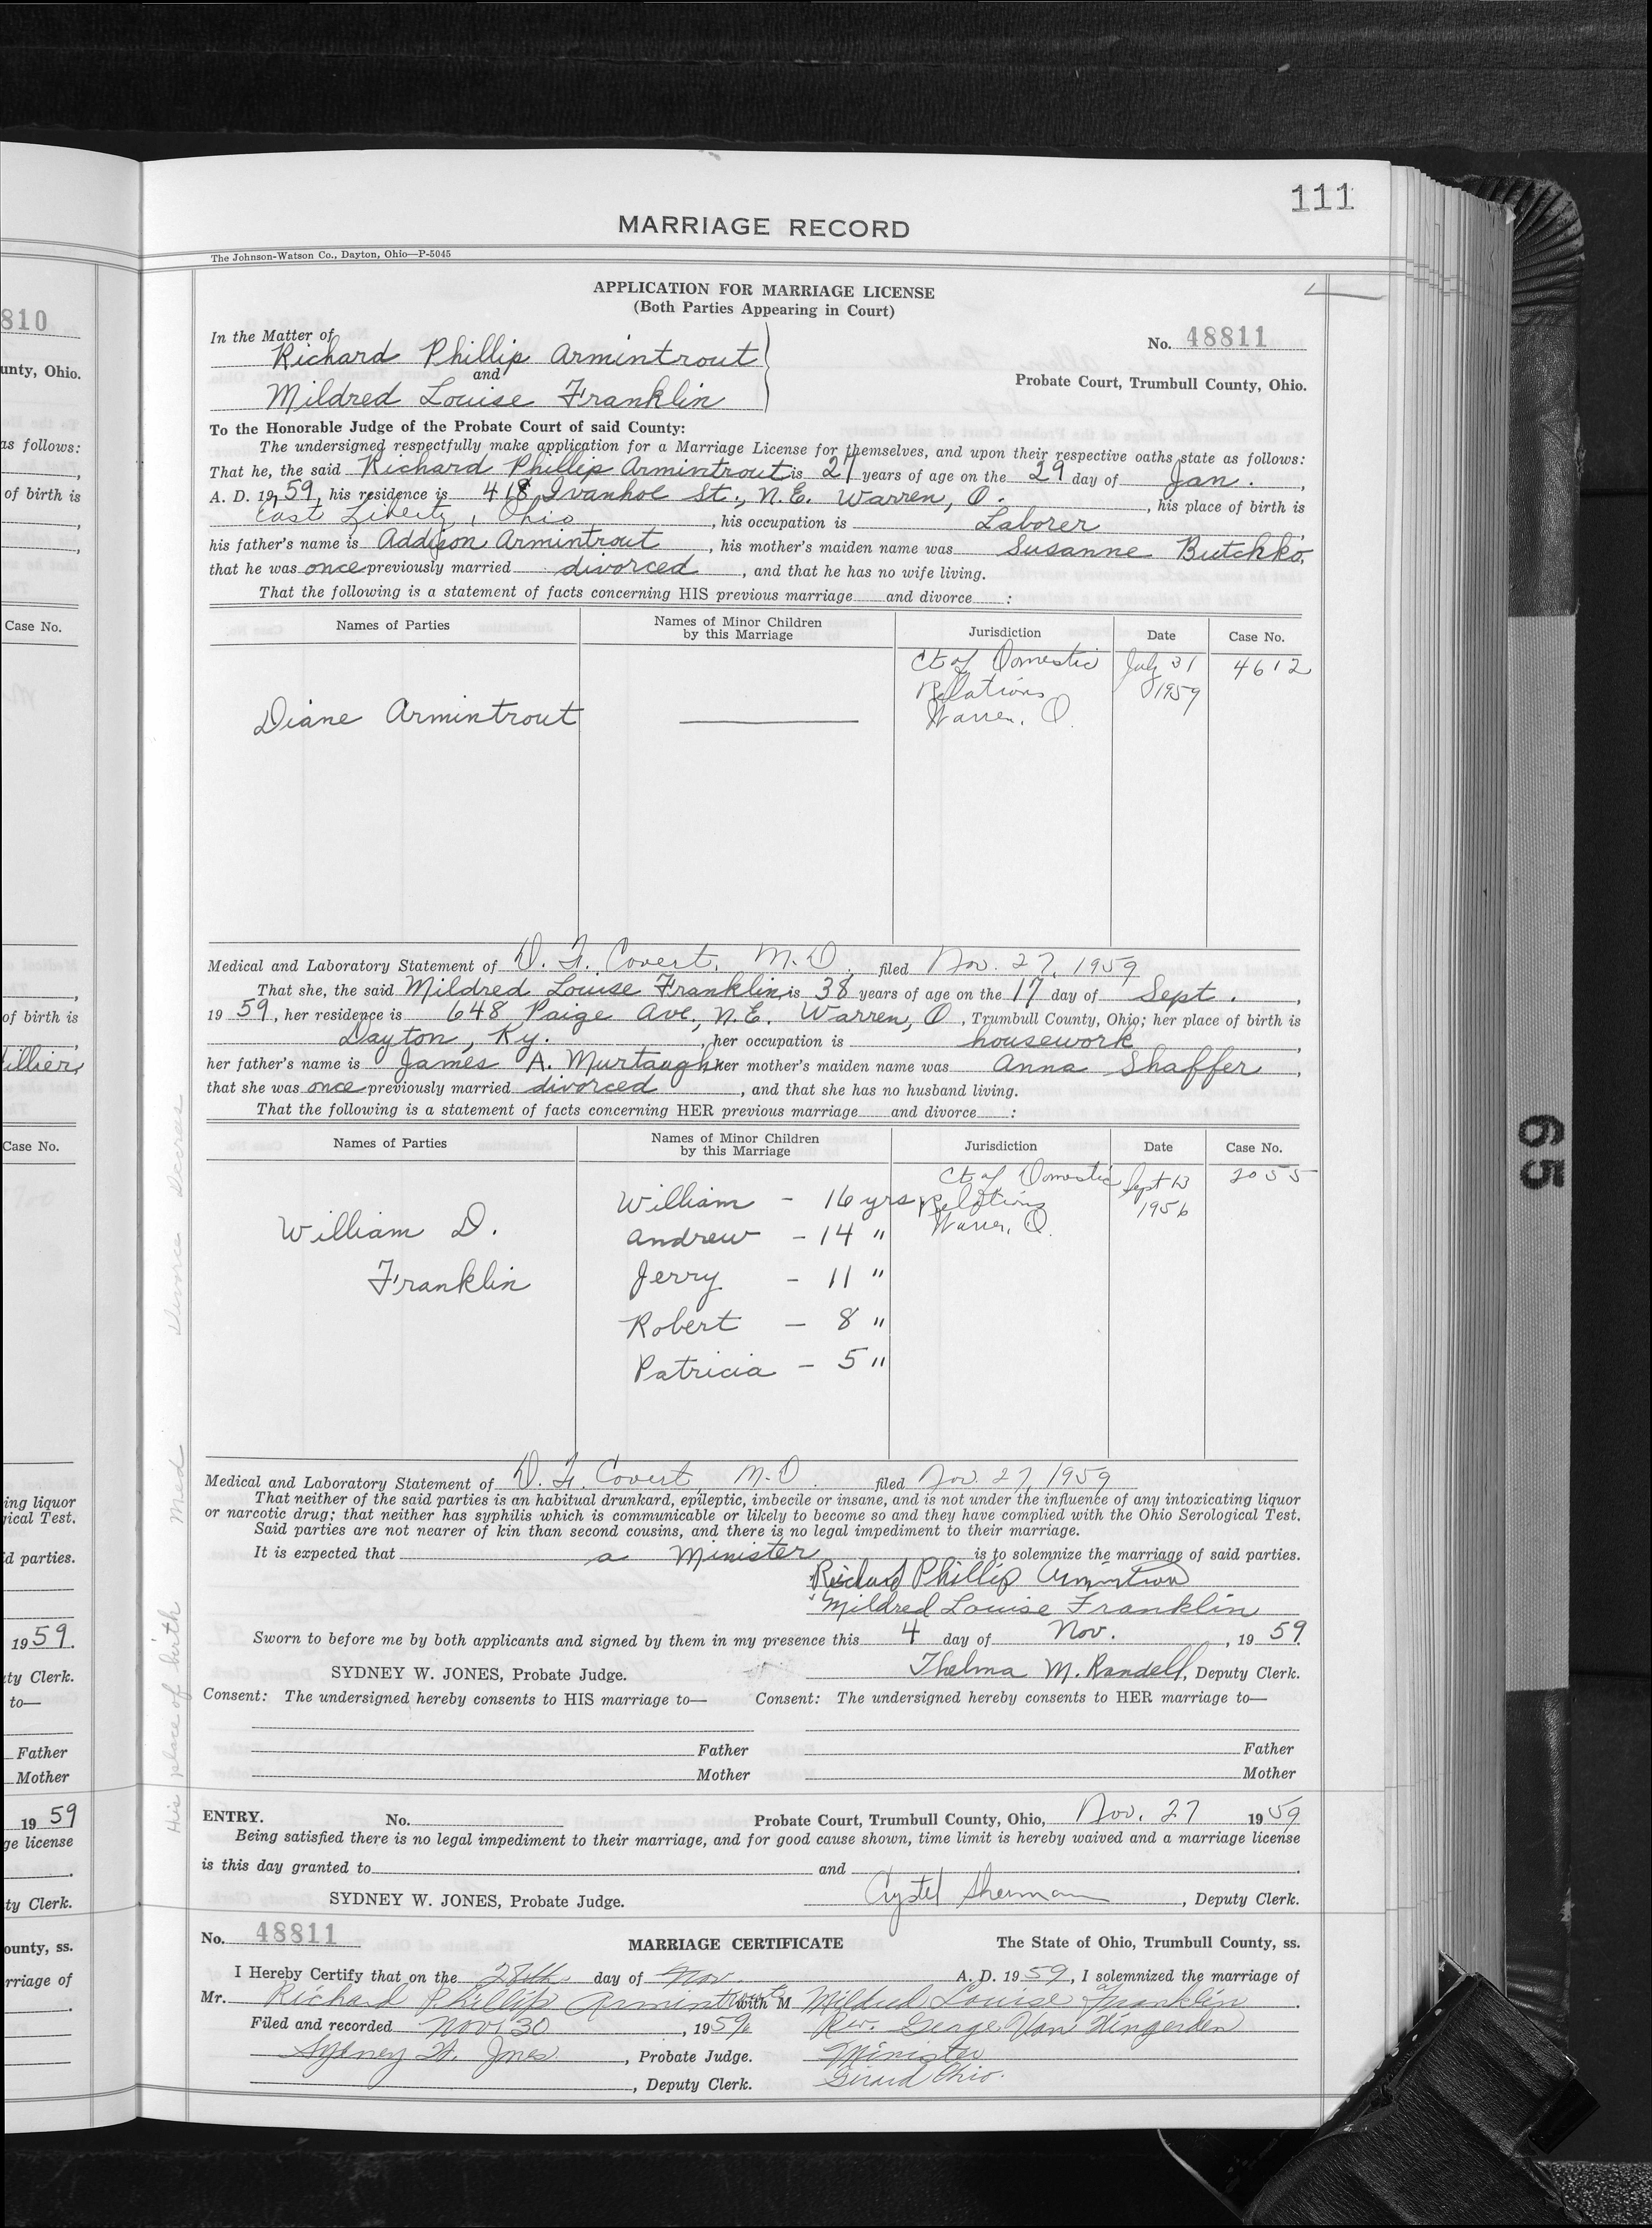 111
MARRIAGE RECORD
The Johnson-Watson Co., Dayton, Ohio—P-5045
APPLICATION FOR MARRIAGE LICENSE
(Both Parties Appearing in Court)
In the Matter of
Richard Phillip Armintrout
and
Mildred Louise Franklin
No. 48811
Probate Court, Trumbull County, Ohio.
To the Honorable Judge of the Probate Court of said County:
The undersigned respectfully make application for a Marriage License for themselves, and upon their respective oaths state as follows:
That he, the said Richard Phillip Armintrout is 21 years of age on the 29 day of Jan. ,
A. D. 19 59, his residence is 418 Ivanhoe St., N.E. Warren, O. , his place of birth is
East Liberty, Ohio , his occupation is Laborer ,
his father's name is Addison Armintrout , his mother's maiden name was Susanne Butchko,
that he was once previously married divorced , and that he has no wife living.
That the following is a statement of facts concerning HIS previous marriage and divorce :
Names of Parties Names of Minor Children by this Marriage Jurisdiction Date Case No.
Diane Armintrout Ct of Domestic Relations Warren, O. July 31 1959 4612
Medical and Laboratory Statement of D. F. Covert, M.D. filed Nov. 27, 1959
That she, the said Mildred Louise Franklin is 38 years of age on the 17 day of Sept. ,
19 59, her residence is 648 Paige Ave., N.E. Warren, O , Trumbull County, Ohio; her place of birth is
Dayton, Ky. , her occupation is housework ,
her father's name is James A. Murtaugh her mother's maiden name was Anna Shaffer ,
that she was once previously married divorced , and that she has no husband living.
That the following is a statement of facts concerning HER previous marriage and divorce :
Names of Parties Names of Minor Children by this Marriage Jurisdiction Date Case No.
William D. Franklin Ct of Domestic Relations Warren, O. Sept 13 1956 2055
William - 16 yrs
Andrew - 14 "
Jerry - 11 "
Robert - 8 "
Patricia - 5 "
Medical and Laboratory Statement of D. F. Covert M.D. filed Nov. 27, 1959
That neither of the said parties is an habitual drunkard, epileptic, imbecile or insane, and is not under the influence of any intoxicating liquor
or narcotic drug; that neither has syphilis which is communicable or likely to become so and they have complied with the Ohio Serological Test.
Said parties are not nearer of kin than second cousins, and there is no legal impediment to their marriage.
It is expected that a Minister is to solemnize the marriage of said parties.
Richard Phillip Armintrout
Mildred Louise Franklin
Sworn to before me by both applicants and signed by them in my presence this 4 day of Nov. , 19 59
SYDNEY W. JONES, Probate Judge. Thelma M. Randell, Deputy Clerk.
Consent: The undersigned hereby consents to HIS marriage to— Consent: The undersigned hereby consents to HER marriage to—
Father Father
Mother Mother
ENTRY. No. Probate Court, Trumbull County, Ohio, Nov. 27 19 59
Being satisfied there is no legal impediment to their marriage, and for good cause shown, time limit is hereby waived and a marriage license
is this day granted to and .
SYDNEY W. JONES, Probate Judge. Crystel Sherman , Deputy Clerk.
No. 48811 MARRIAGE CERTIFICATE The State of Ohio, Trumbull County, ss.
I Hereby Certify that on the 28th day of Nov. A. D. 19 59, I solemnized the marriage of
Mr. Richard Phillip Armintrout with M Mildred Louise Franklin .
Filed and recorded Nov 30 , 19 59 Rev. George Van Wingerden
Sydney W. Jones , Probate Judge. Minister
, Deputy Clerk. Girard Ohio.
His place of birth Med Divorce Decrees
65
810
unty, Ohio.
as follows:
of birth is
Case No.
of birth is
illier,
Case No.
ing liquor
gical Test.
d parties.
19 59.
ty Clerk.
to—
Father
Mother
19 59
ge license
ty Clerk.
ounty, ss.
rriage of